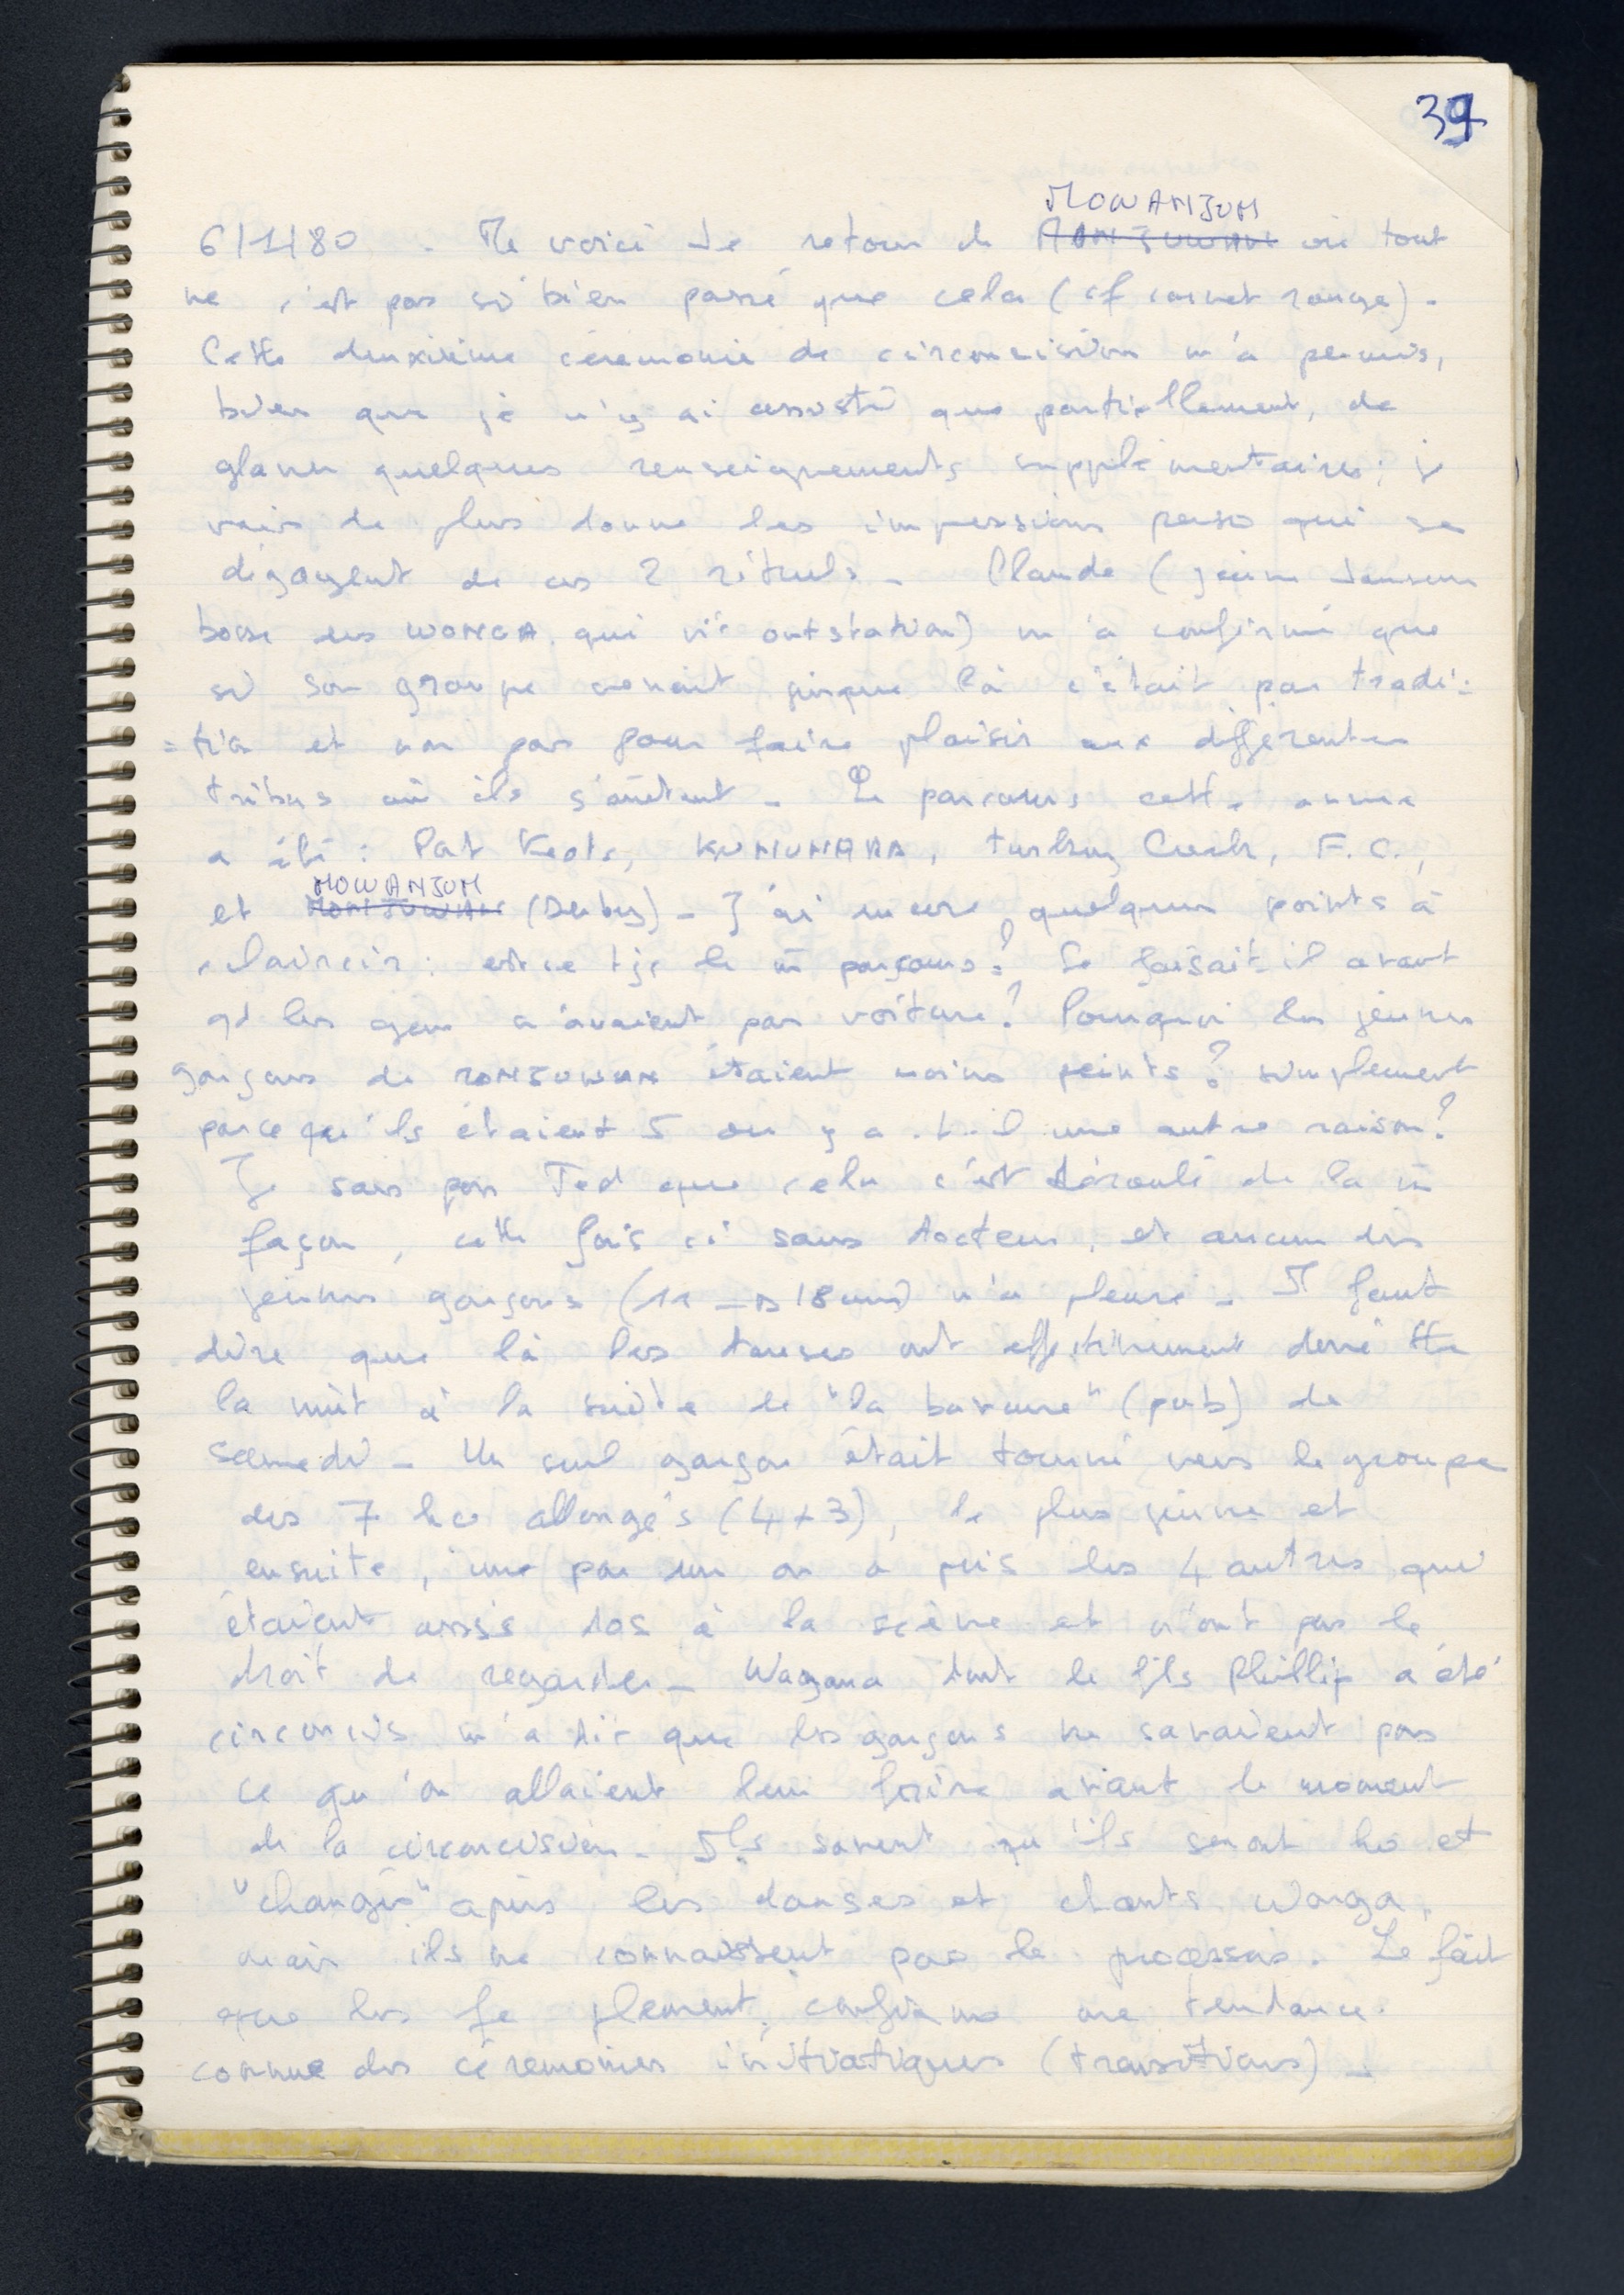 39
MOWANJUM
6/1/80. Me voici de retour de MONJUWAN où tout
ne c'est pas si bien passé que cela (cf carnet rouge).
Cette deuxième cérémonie de circoncision m'a permis,
bien que je n'y ai assisté que partiellement, de
glaner quelques renseignements supplémentaires; je
vais de plus donne les impressions perso qui se
dégagent de ces 2 rituels - Claude (jeune danseur
boss des WONGA qui vit outstation) m'a confirmé que
si son groupe venait jusque là c'était par tradi=
=tion et non pas pour faire plaisir aux différentes
tribus où ils s'arrêtent - Le parcours cette année
a été : Port Keats, KUNUNARA, Turkey Creek, F.C.,
MOWANJUM
et MONJUWAN (Derby) - J'ai encore quelques points à
éclaircir : est ce tjs le m̄ parcours? Se faisait-il avant
qd les gens n'avaient pas voiture? Pourquoi les jeunes
garçons de MONJUWAN étaient moins peints? simplement
parce qu'ils étaient 5 ou y a-t-il une autre raison?
Je sais par Ted que cela c'est déroulé de la m̄
façon, cette fois ci sans docteur, et aucun des
jeunes garçons (11 → 18 ans) n'a pleuré - Il faut
dire que là les danses ont effectivement duré tte
la nuit à la suite de "la bavure" (pub) de
samedi - Un seul garçon était tourné vers le groupe
des 7 ho allongés (4+3), le plus jeune et
ensuite, une par un on a pris les 4 autres qui
étaient assis dos à la scène et n'ont pas le
droit de regarder - Wagana dont le fils Phillip a été
circoncis m'a dit que les garçons ne savaient pas
ce qu'on allaient leur faire avant le moment
de la circoncision - Ils savent qu'ils seront ho et
"changés" après les danses et chants Wonga,
mais ils ne connaissent pas le processus. Le fait
que les fe pleurent, confirme une tendance.
comme des cérémonies initiatiques (transitions) -